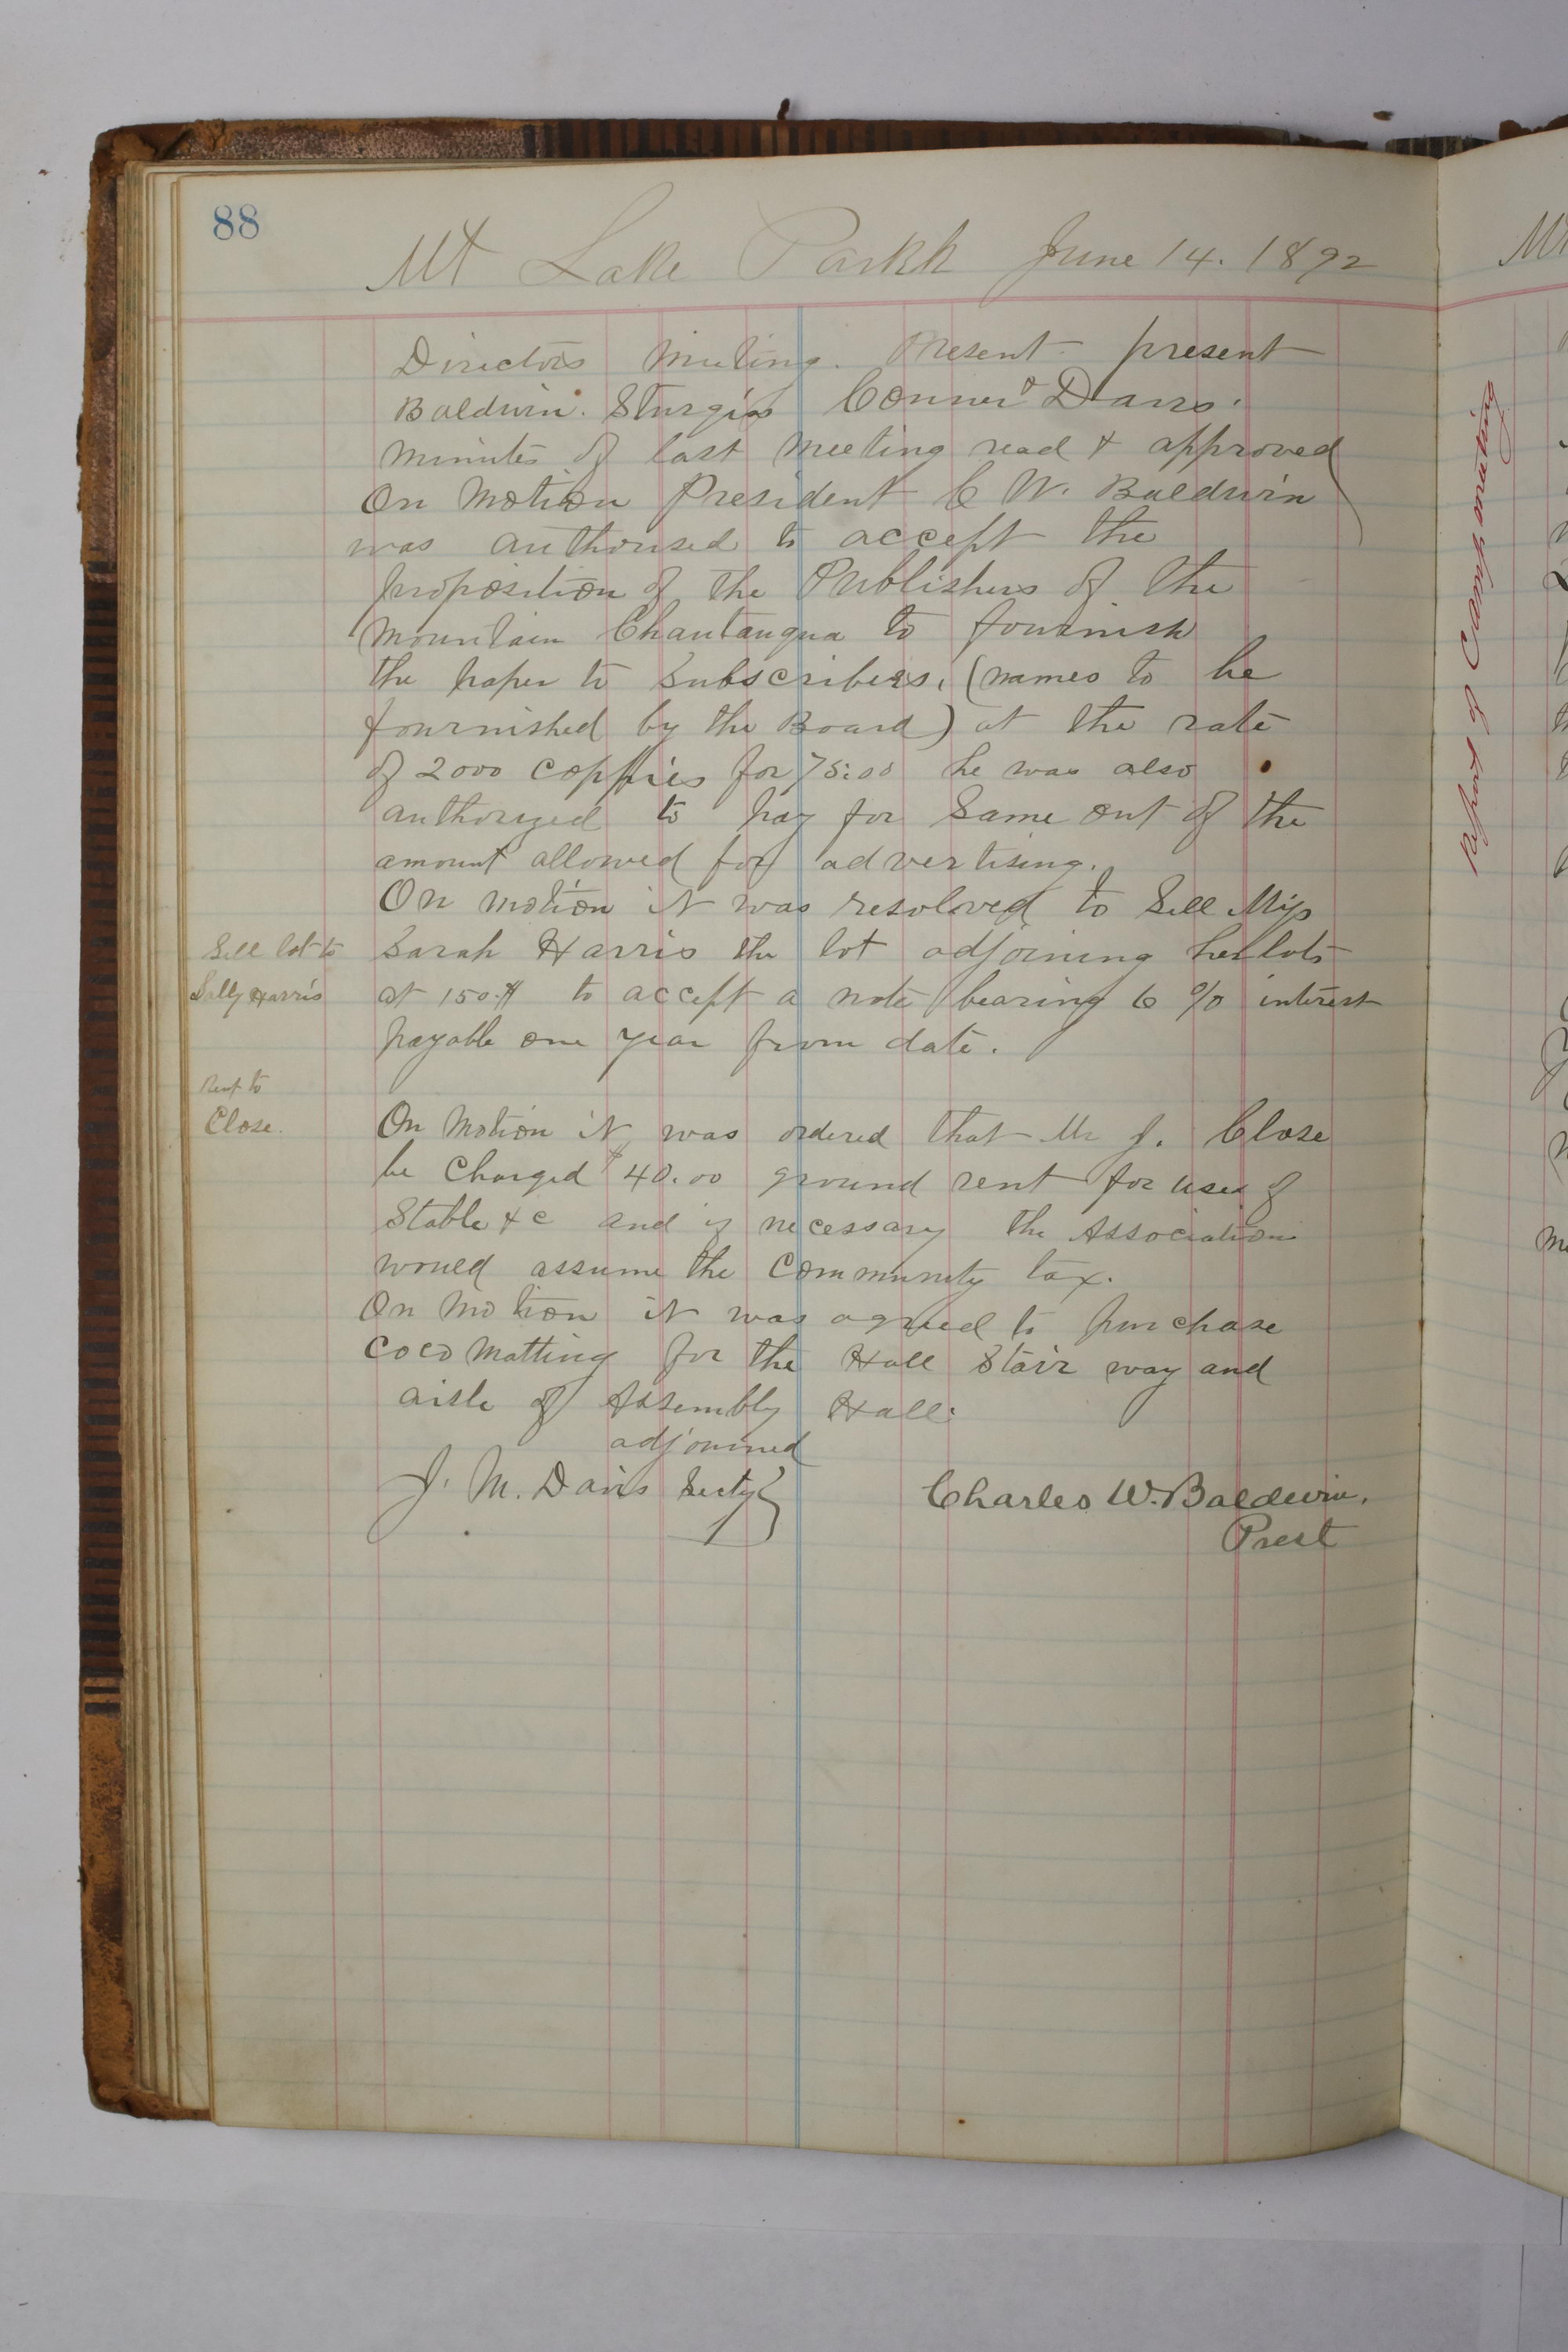 88
Mt Lake Parkk June 14. 1892
Directors Meeting. Present present
Baldwin. Sturgis Conner & Davis.
minutes of last meeting read & approved
On motion President C W. Baldwin
was authorised to accept the
proposition of the Publishers of the
Mountain Chautauqua to fournish
the paper to Subscribers, (names to be
fournished by the Board) at the rate
of 2000 coppies for 75.00 he was also
authorized to pay for same out of the
amount allowed for advertising.
On motion it was resolved to Sell Miss
Sell lot to Sarah Harris the lot adjoining her lots
Sally Harris at 150.$ to accept a note bearing 6 % interest
payable one year from date.
Rent to
Close. On motion it was ordered that Mr J. Close
be Charged $40.00 ground rent for uses of
Stable &c and if necessary the Association
would assume the Community tax.
On motion it was agreed to purchase
Coco Matting for the Hall Stair way and
aisle of Assembly Hall.
adjourned
J. M. Davis Secty Charles W. Baldwin.
Prest
Report of Camp meeting